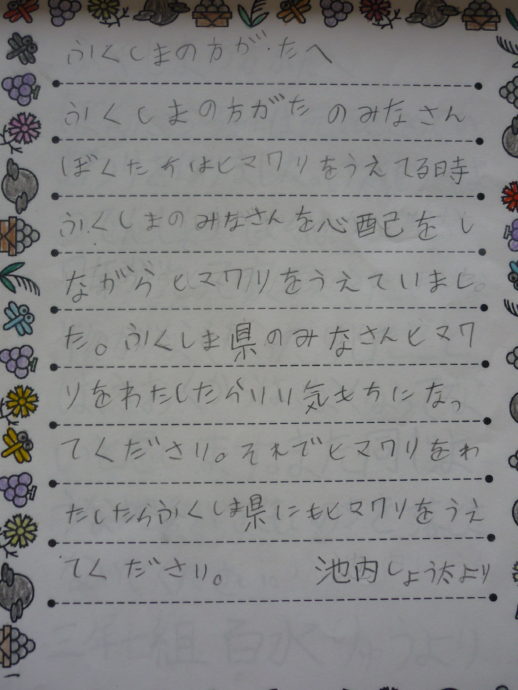 ふくしまの方がたへ
ふくしまの方がたのみなさん
ぼくたちはヒマワリをうえてる時
ふくしまのみなさんを心配をし
ながらヒマワリをうえていまし
た。ふくしま県のみなさんヒマワ
リをわたしたらいい気もちになっ
てください。それでヒマワリをわ
たしたらふくしま県にもヒマワリをうえ
てください。 池内しょう太より